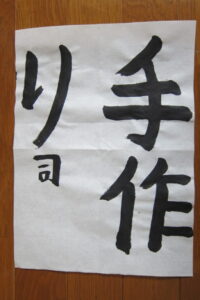 手作
り
司